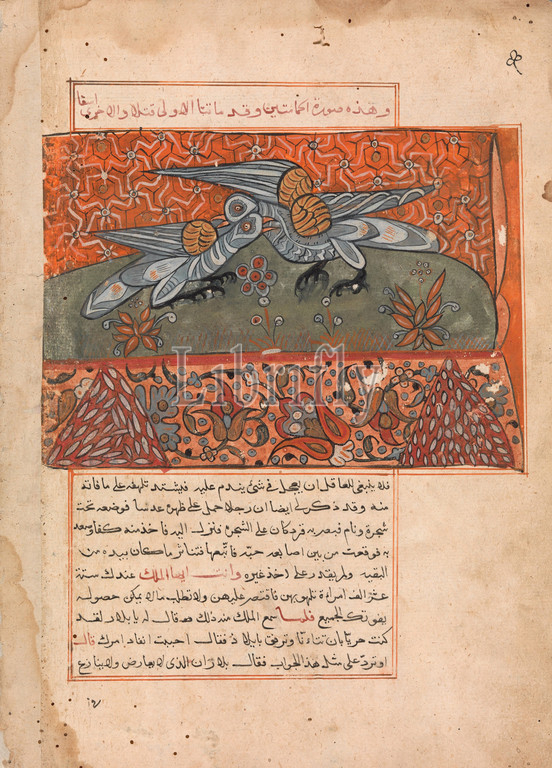 وهذه صورة الحمامتين وقد ماتتا الاولى قتلا والاخرى اسفا
فلا ينبغي للعاقل ان يعجل في شئ يندم عليه فيشتد تلهفه على ما فاته
منه وقد ذكر لي ايضا ان رجلا حمل على ظهره عدسا فوضعه تحت
شجرة ونام فبصر به قرد كان على الشجرة فنزل اليه فاخذ منه كفا وصعد
به فوقعت من بين اصابعه حبة فاتبعها فتناثر ما كان بيده من
البقية ولم يقدر على اخذ غيره وانت ايها الملك عندك ستة
عشر الف امراة تلهو بهن فاقتصر عليهن ولا تطلب ما لا يمكن حصوله
يفوتك الجميع فلما سمع الملك منه ذلك قال له يا بلار لقد
كنت حريا بان تتاءنا وترفق بايلاذ فقال احببت انفاذ امرك قال
اوترد على مثل هذا الجواب فقال بلار ان الذي لا يعارض ولا ينازع
Librifly